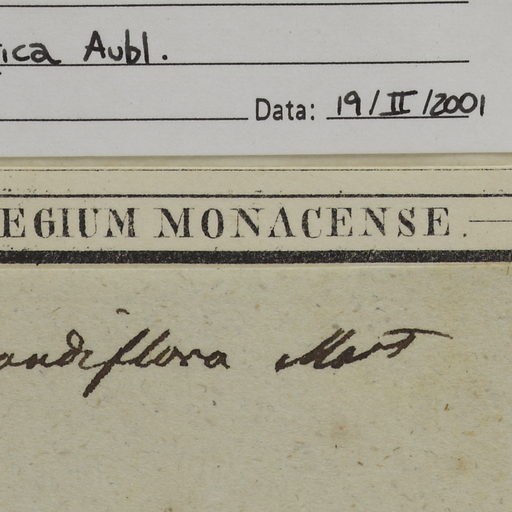 ica Aubl.
Data: 19/II/2001
EGIUM MONACENSE.
andiflora Mart